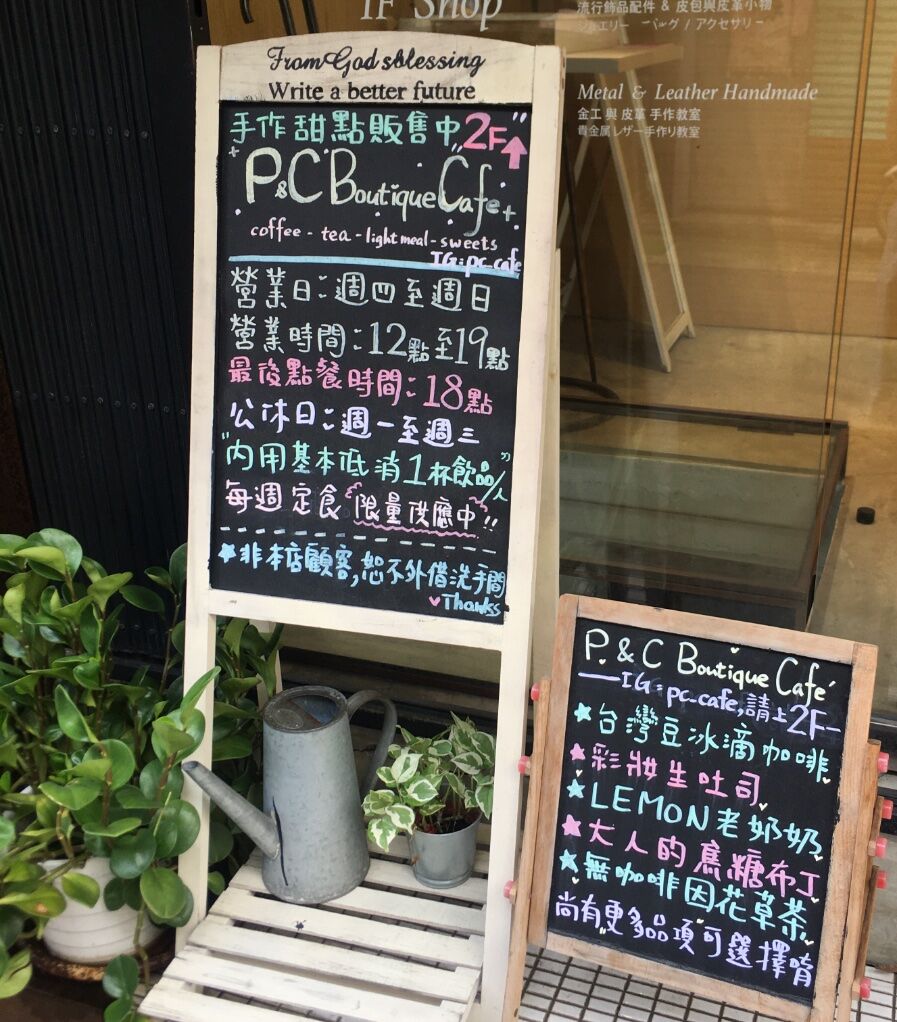 IF Shop
流行飾品配件 & 皮包與皮革小物
Metal & Leather Handmade
金工 與 皮革 手作教室
貴金属 レザー手作り教室
From God's blessing
Write a better future
手作甜點販售中 2F
P&C Boutique Cafe
coffee - tea - light meal - sweets
IG: pc_cafe
營業日: 週四至週日
營業時間: 12點至19點
最後點餐時間: 18點
公休日: 週一至週三
"內用基本低消1杯飲品/人"
每週定食 限量供應中!!
★非本店顧客,恕不外借洗手間
♥Thanks
P&C Boutique Café
IG: pc_cafe, 請上2F
★台灣豆冰滴咖啡
★彩妝生吐司
★LEMON老奶奶
★大人的焦糖布丁
★無咖啡因花草茶
尚有更多品項可選擇唷